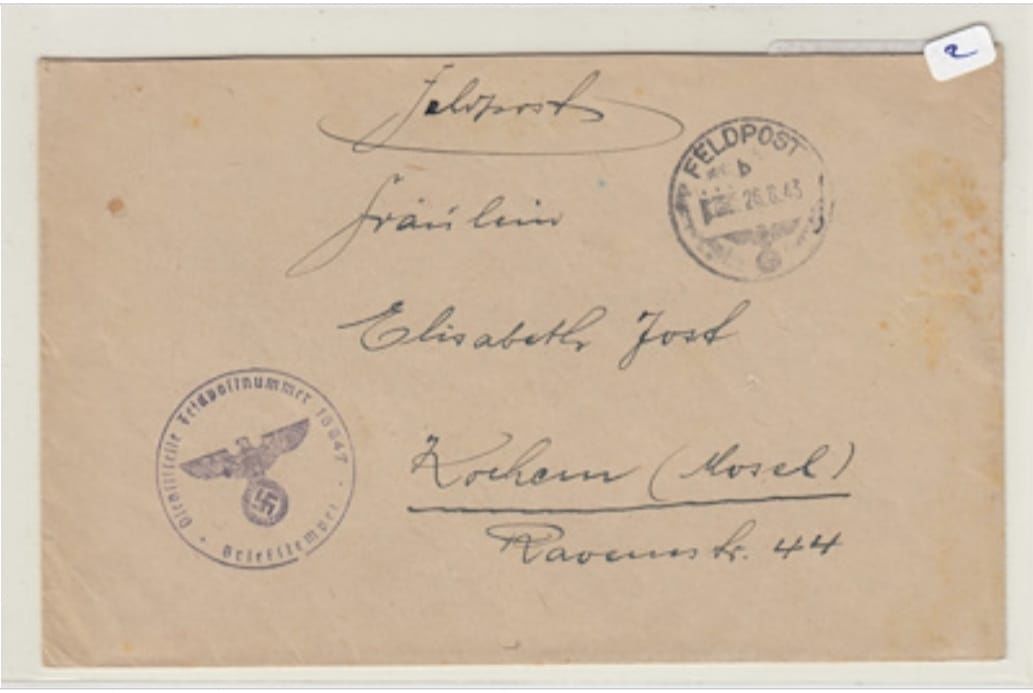 2
Feldpost
FELDPOST
b
26.6.43
Fräulein
Elisabeth Jost
Kochem (Mosel)
Ravenestr. 44
Dienststelle Feldpostnummer
Briefstempel